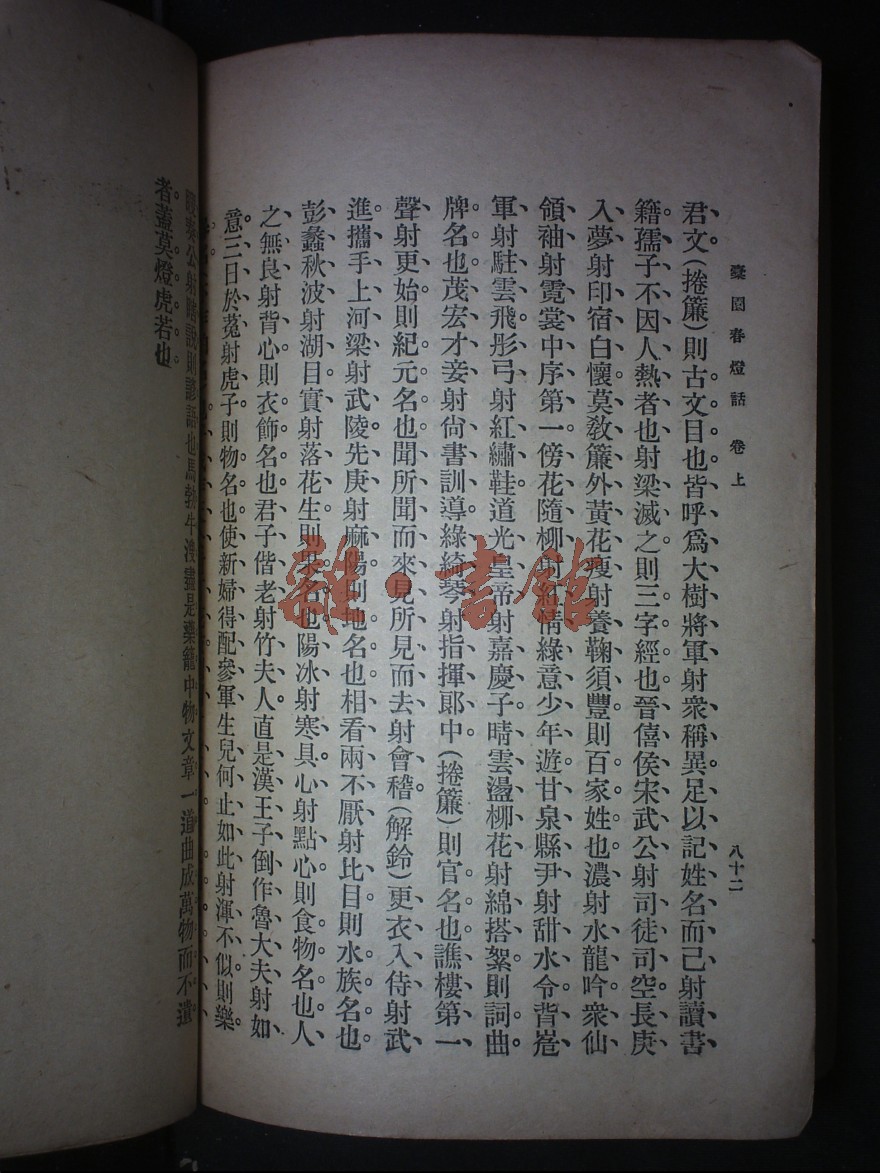 橐園春燈話 卷上 八十二
君文(捲簾)則古文目也皆呼爲大樹將軍射衆稱異足以記姓名而已射讀書
籍孺子不因人熱者也射梁滅之則三字經也晉僖侯宋武公射司徒司空長庚
入夢射印宿白懷莫敎簾外黃花瘦射養鞠須豐則百家姓也濃射水龍吟衆仙
領袖射霓裳中序第一傍花隨柳射紅情綠意少年遊甘泉縣尹射甜水令背嵬
軍射駐雲飛彤弓射紅繡鞋道光皇帝射嘉慶子晴雲盪柳花射綿搭絮則詞曲
牌名也茂宏才妾射尙書訓導綠綺琴射指揮郞中(捲簾)則官名也譙樓第一
聲射更始則紀元名也聞所聞而來見所見而去射會稽(解鈴)更衣入侍射武
進攜手上河梁射武陵先庚射麻陽則地名也相看兩不厭射比目則水族名也
彭蠡秋波射湖目實射落花生則果名也陽冰射寒具心射點心則食物名也人
之無良射背心則衣飾名也君子偕老射竹夫人直是漢王子倒作魯大夫射如
意三日於菟射虎子則物名也使新婦得配參軍生兒何止如此射渾不似則樂
公射
則諺語也馬勃牛溲盡是藥籠中物文章一道曲成萬物而不遺
者蓋莫燈虎若也
雜·書館